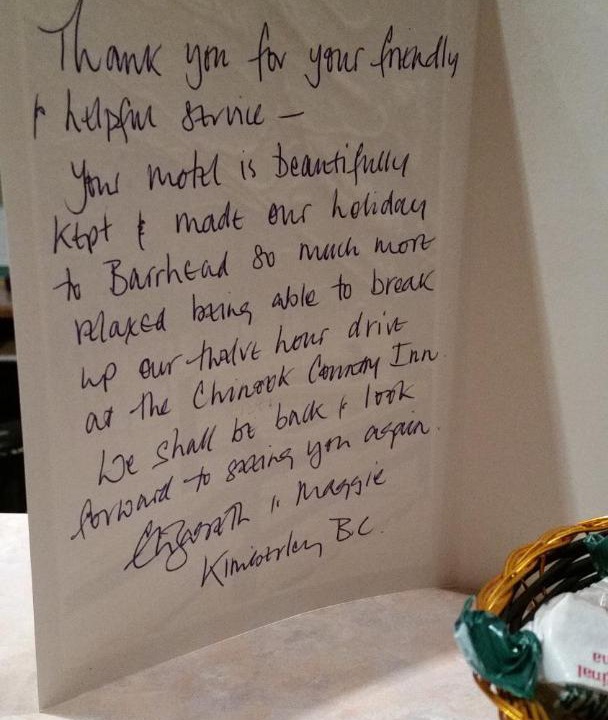 Thank you for your friendly
& helpful service —
Your motel is beautifully
kept & made our holiday
to Barrhead so much more
relaxed being able to break
up our twelve hour drive
at the Chinook Country Inn.
We shall be back & look
forward to seeing you again.
Elizabeth & Maggie
Kimberley BC.
inal
na